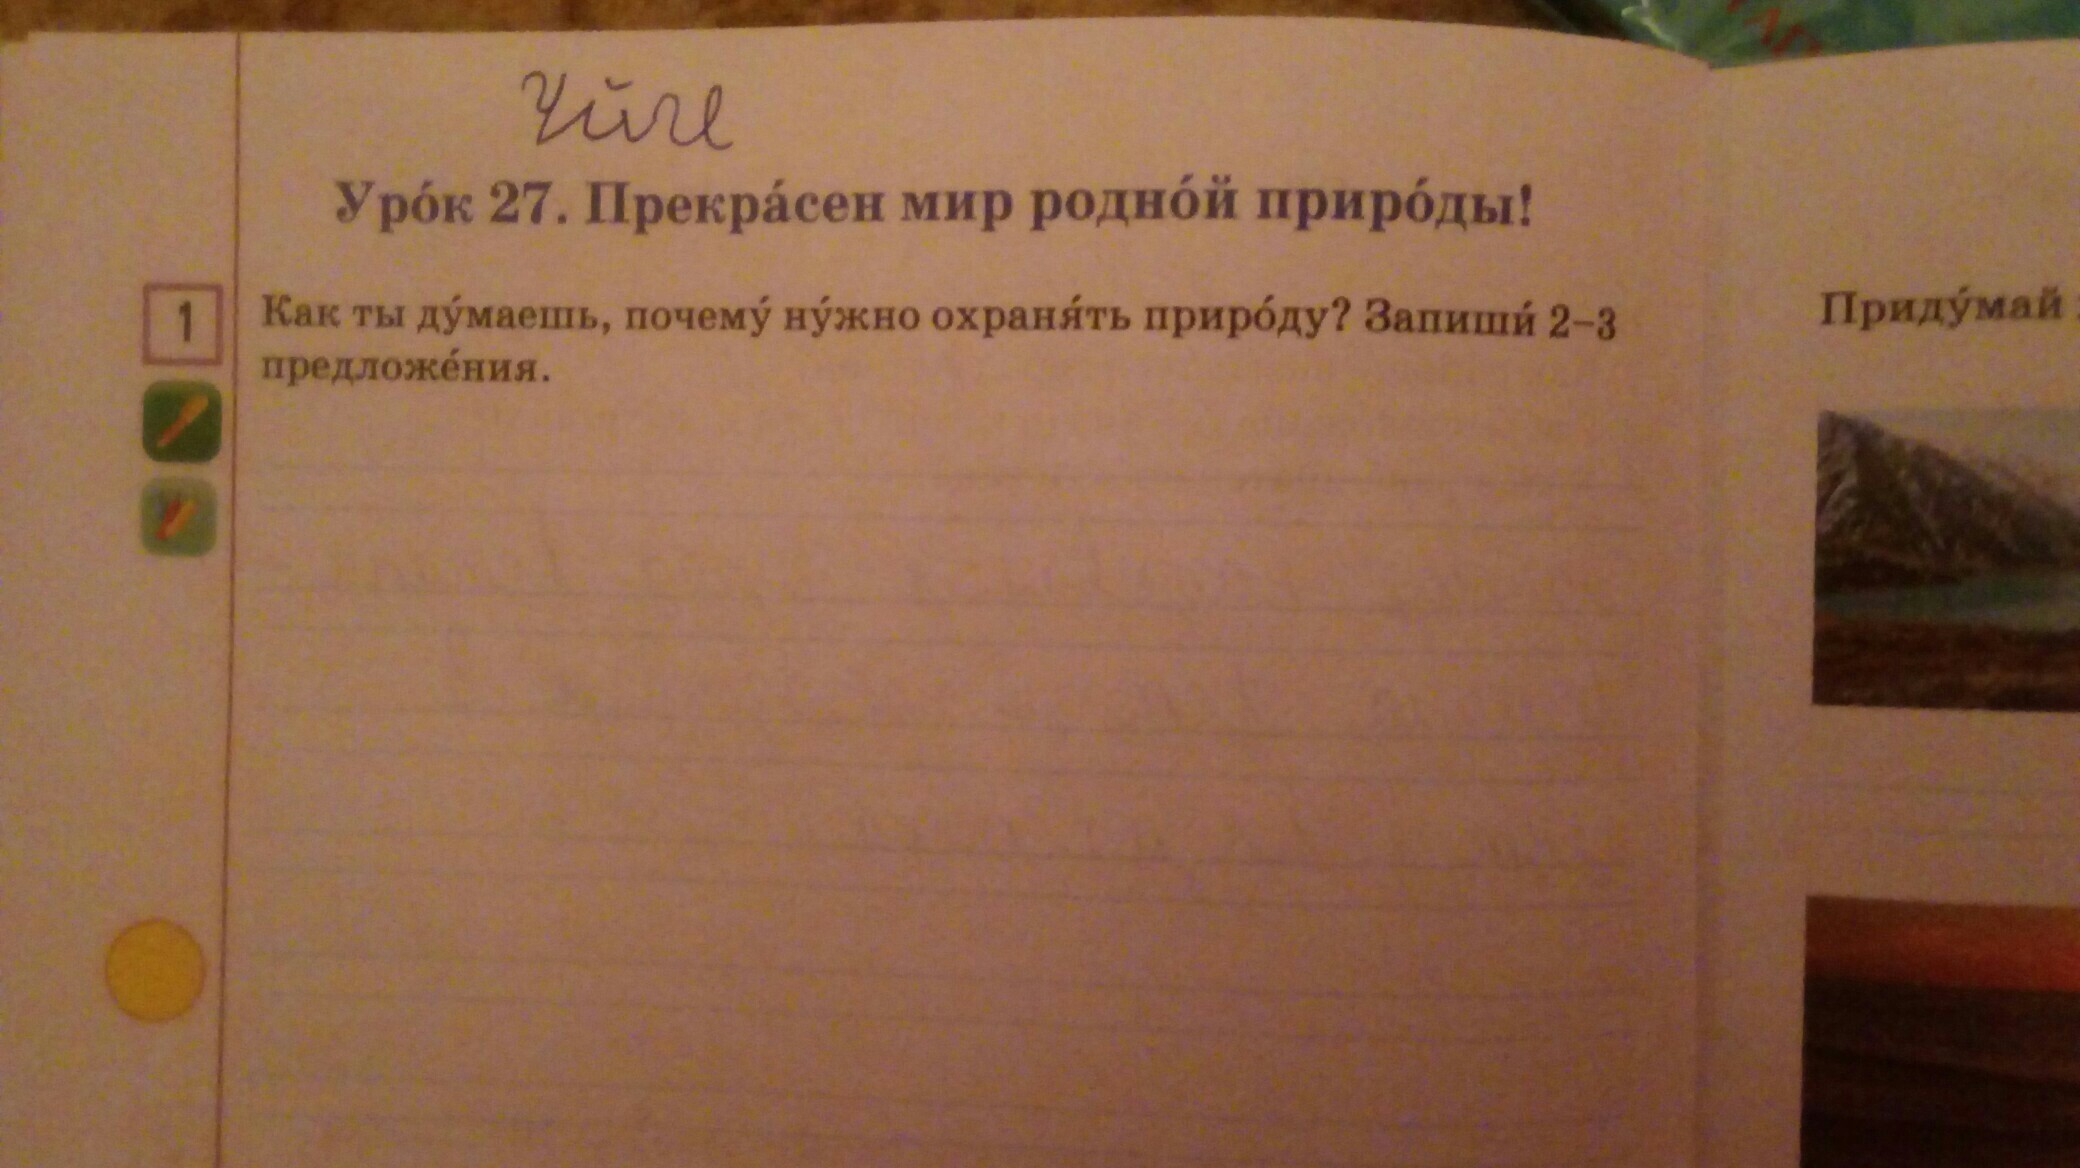 Үйге
Уро́к 27. Прекра́сен мир родно́й приро́ды!
1
Как ты ду́маешь, почему́ ну́жно охраня́ть приро́ду? Запиши́ 2–3
предложе́ния.
Приду́май